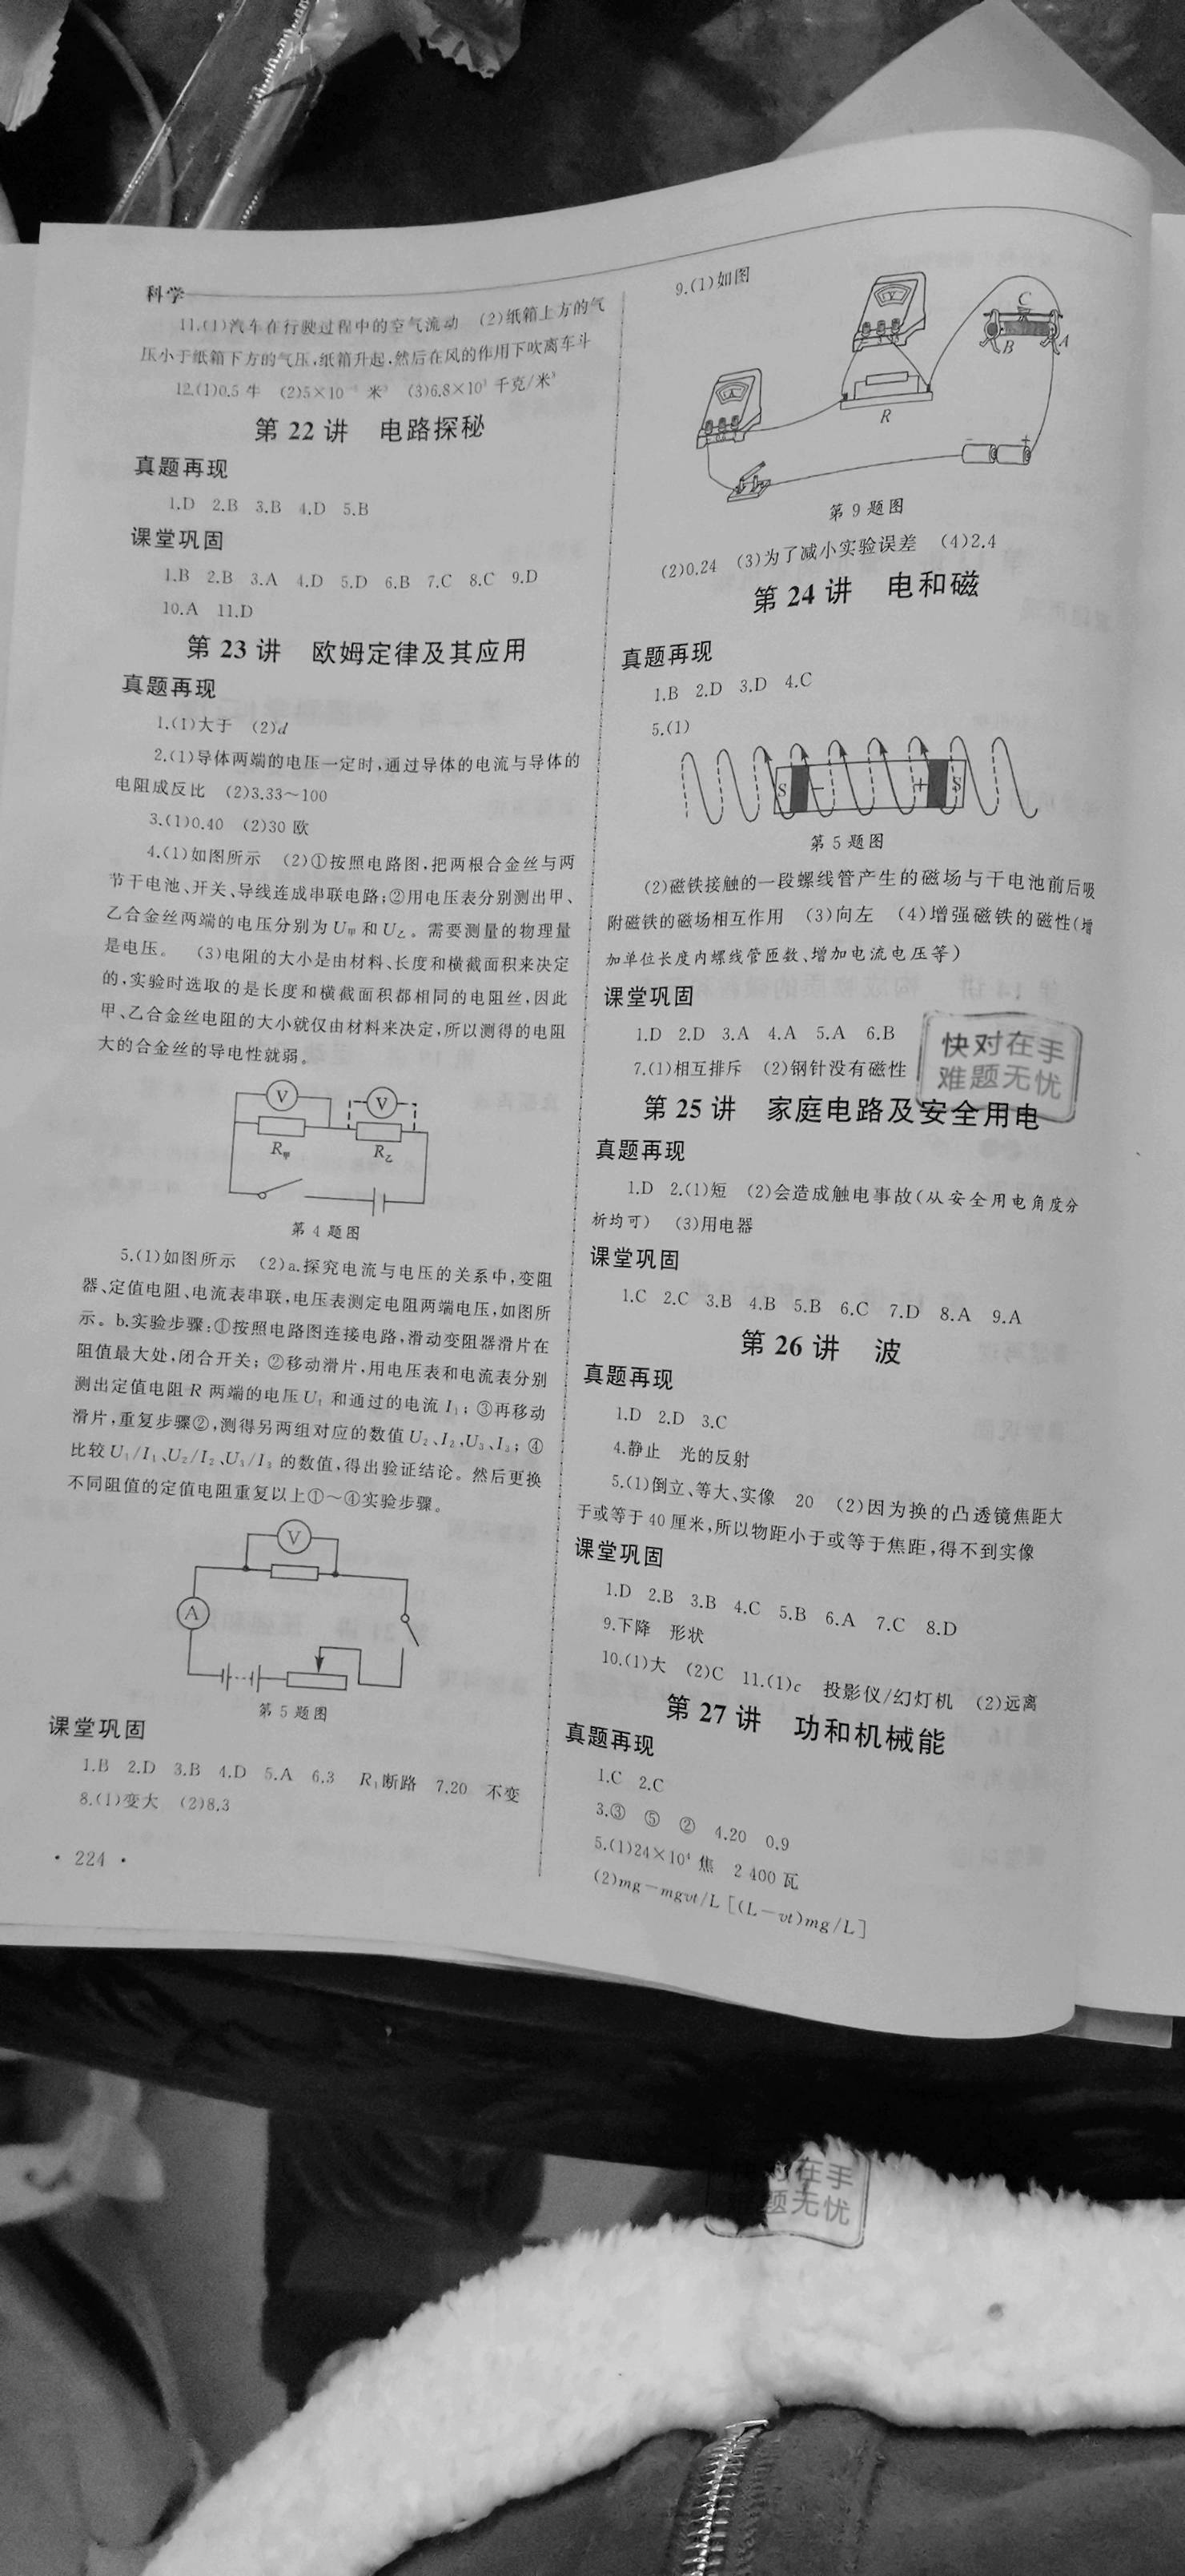 科学
11.(1)汽车在行驶过程中的空气流动 (2)纸箱上方的气
压小于纸箱下方的气压,纸箱升起,然后在风的作用下吹离车斗
12.(1)0.5 牛 (2)5×10 米³ (3)6.8×10³ 千克/米³
第 22 讲 电路探秘
真题再现
1.D 2.B 3.B 4.D 5.B
课堂巩固
1.B 2.B 3.A 4.D 5.D 6.B 7.C 8.C 9.D
10.A 11.D
第 23 讲 欧姆定律及其应用
真题再现
1.(1)大于 (2)d
2.(1)导体两端的电压一定时,通过导体的电流与导体的
电阻成反比 (2)3.33～100
3.(1)0.40 (2)30 欧
4.(1)如图所示 (2)①按照电路图,把两根合金丝与两
节干电池、开关、导线连成串联电路;②用电压表分别测出甲、
乙合金丝两端的电压分别为 U甲 和 U乙。需要测量的物理量
是电压。 (3)电阻的大小是由材料、长度和横截面积来决定
的,实验时选取的是长度和横截面积都相同的电阻丝,因此
甲、乙合金丝电阻的大小就仅由材料来决定,所以测得的电阻
大的合金丝的导电性就弱。
V V
R甲 R乙
第 4 题图
5.(1)如图所示 (2)a.探究电流与电压的关系中,变阻
器、定值电阻、电流表串联,电压表测定电阻两端电压,如图所
示。b.实验步骤:①按照电路图连接电路,滑动变阻器滑片在
阻值最大处,闭合开关;②移动滑片,用电压表和电流表分别
测出定值电阻 R 两端的电压 U₁ 和通过的电流 I₁;③再移动
滑片,重复步骤②,测得另两组对应的数值 U₂、I₂,U₃、I₃;④
比较 U₁/I₁、U₂/I₂、U₃/I₃ 的数值,得出验证结论。然后更换
不同阻值的定值电阻重复以上①～④实验步骤。
V
A
第 5 题图
课堂巩固
1.B 2.D 3.B 4.D 5.A 6.3 R₁断路 7.20 不变
8.(1)变大 (2)8.3
· 224 ·
9.(1)如图
V
C
B A
A
R
- +
第 9 题图
(2)0.24 (3)为了减小实验误差 (4)2.4
第 24 讲 电和磁
真题再现
1.B 2.D 3.D 4.C
5.(1)
S - + S
第 5 题图
(2)磁铁接触的一段螺线管产生的磁场与干电池前后吸
附磁铁的磁场相互作用 (3)向左 (4)增强磁铁的磁性(增
加单位长度内螺线管匝数、增加电流电压等)
课堂巩固
1.D 2.D 3.A 4.A 5.A 6.B
7.(1)相互排斥 (2)钢针没有磁性
快对在手
难题无忧
第 25 讲 家庭电路及安全用电
真题再现
1.D 2.(1)短 (2)会造成触电事故(从安全用电角度分
析均可) (3)用电器
课堂巩固
1.C 2.C 3.B 4.B 5.B 6.C 7.D 8.A 9.A
第 26 讲 波
真题再现
1.D 2.D 3.C
4.静止 光的反射
5.(1)倒立、等大、实像 20 (2)因为换的凸透镜焦距大
于或等于 40 厘米,所以物距小于或等于焦距,得不到实像
课堂巩固
1.D 2.B 3.B 4.C 5.B 6.A 7.C 8.D
9.下降 形状
10.(1)大 (2)C 11.(1)c 投影仪/幻灯机 (2)远离
第 27 讲 功和机械能
真题再现
1.C 2.C
3.③ ⑤ ② 4.20 0.9
5.(1)24×10⁴ 焦 2 400 瓦
(2)mg－mgvt/L[(L－vt)mg/L]
在手
题无忧